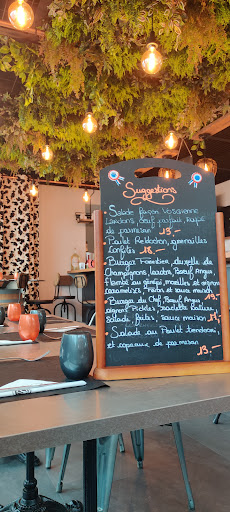 Suggestions
• Salade façon Vosgienne
Lardons, œuf parfait, râpé
de parmesan 13.-
• Poulet Rôtisson, grenailles
Confites 16.-
• Burger Forestier duxelle de
Champignons, lardons, Boeuf Angus,
Flambé au génépi, morilles et oignons
caramélisés, frites et sauce maison 19.-
• Burger du Chef, Boeuf Angus
oignons Pickles, raclette
Salade, frites, sauce maison 17.-
• Salade au Poulet tandoori,
et copeaux de parmesan
13.-